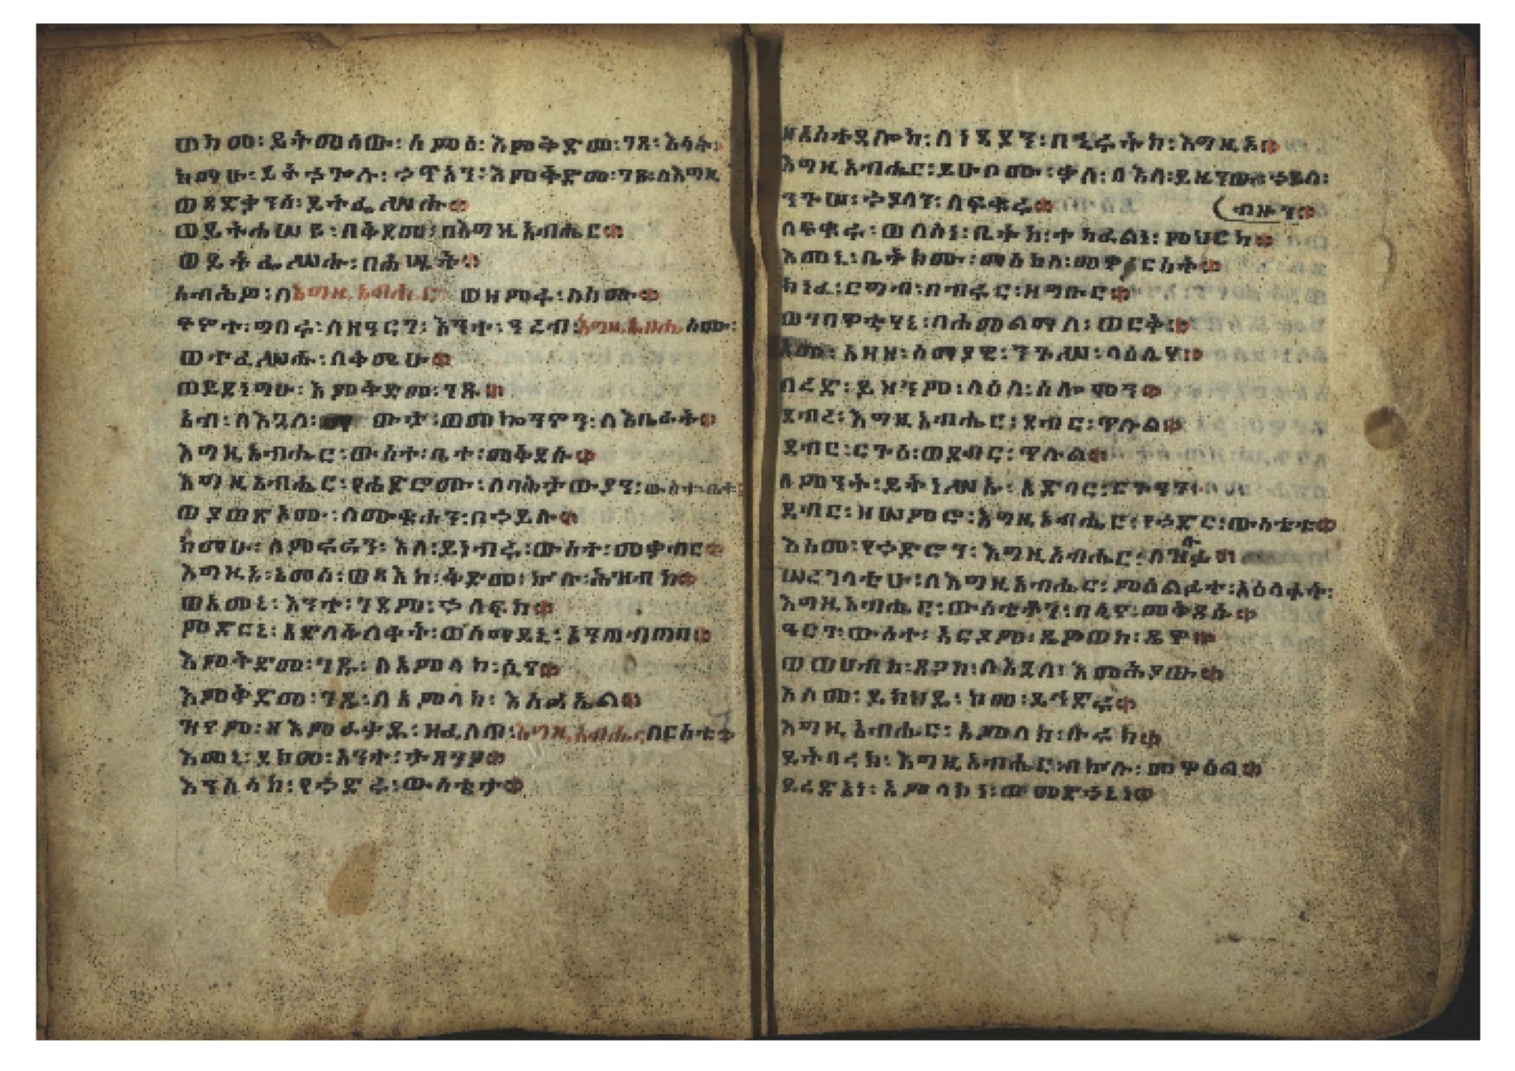 ወከመ፡ ይትመሰው፡ ሰምዕ፡ እምቅድመ፡ ገጸ፡ እሳት፡
ከማሁ፡ ይትኀጐሉ፡ ኃጥኣን፡ እምቅድመ፡ ገጹ፡ ለእግዚ
ወጻድቃንሰ፡ ይትፌሥሑ።
ወይትሐሠዩ፡ በቅድመ፡ በእግዚአብሔር።
ወይትፌሥሑ፡ በሐሤት።
ሰብሕዎ፡ ለእግዚአብሔር ወዘምሩ፡ ለስሙ።
ፍኖተ፡ ግበሩ፡ ለዘዓርገ፡ እንተ፡ ዓረብ፡ እግዚአብሔር ስሙ፡
ወተፈሥሑ፡ በቅሜሁ።
ወይደነግፁ፡ እምቅድመ፡ ገጹ።
አብ፡ ለእጓለ፡ ውታ፡ ወመኰንኖን፡ ለእቤራት።
እግዚአብሔር፡ ውስተ፡ ቤተ፡ መቅደሱ።
እግዚአብሔር፡ የሐድሮሙ፡ ለባሕታውያን፡ ውስተ፡ ቤት፡
ወያወፅኦሙ፡ ለሙቁሐን፡ በኃይሉ።
ከማሁ፡ ለምሩራን፡ እለ፡ ይነብሩ፡ ውስተ፡ መቃብር።
እግዚኦ፡ አመሰ፡ ወፃእከ፡ ቅድመ፡ ኵሉ፡ ሕዝብከ።
ወአመኒ፡ እንተ፡ ገዳም፡ ኃለፍከ።
ምድርኒ፡ አድለቅለቀት፡ ወሰማይኒ፡ አንጠብጠበ።
እምቅድመ፡ ገጹ፡ ለአምላከ፡ ሲና።
እምቅድመ፡ ገጹ፡ ለአምላከ፡ እስራኤል።
ዝናም፡ ዘእምፈቃዱ፡ ዘፈለጠ፡ እግዚአብሔር ለርስቱ።
እመኒ፡ ደክመ፡ አንተ፡ ታጸንዖ።
እንስሳከ፡ የኃድሩ፡ ውስቴታ።
ዘአስተዳሎከ፡ ለነዳያን፡ በኂሩትከ፡ እግዚኦ።
እግዚአብሔር፡ ይሁቦሙ፡ ቃለ፡ ለእለ፡ ይዜንው፡ ኃይለ፡
ንጉሠ፡ ኃያላን፡ ለፍቁሩ። ብዙኅ።
ለፍቁሩ፡ ወለስነ፡ ቤትከ፡ ተካፈልነ፡ ምህርካ።
እመኒ፡ ቤትክሙ፡ ማዕከለ፡ መዋርስት።
ክነፈ፡ ርግብ፡ በብሩር፡ ዘግቡር።
ወገበዋቲሃኒ፡ በሐመልማለ፡ ወርቅ።
አመ፡ አዘዘ፡ ሰማያዊ፡ ንጉሥ፡ ላዕሌሃ።
በረድ፡ ይዘንም፡ ላዕለ፡ ሰሎሞን።
ደብረ፡ እግዚአብሔር፡ ደብር፡ ጥሉል።
ደብር፡ ርጉዕ፡ ወደብር፡ ጥሉል።
ለምንት፡ ይትነሥኡ፡ አድባር፡ ርጉዓን፡
ደብር፡ ዘሠምሮ፡ እግዚአብሔር፡ የኃድር፡ ውስቴቱ።
እስመ፡ የኃድሮን፡ እግዚአብሔር፡ ለዝሉፉ፡
ሠረገላቲሁ፡ ለእግዚአብሔር፡ ምዕልፊተ፡ አዕላፋት፡
እግዚአብሔር፡ ውስቴቶን፡ በሲና፡ መቅደሱ።
ዓርገ፡ ውስተ፡ አርያም፡ ፄዎወከ፡ ፄዋ።
ወወሀብከ፡ ጸጋከ፡ ለእጓለ፡ እመሕያው።
እስመ፡ ይክህዱ፡ ከመ፡ ይኅድሩ።
እግዚአብሔር፡ አምላክ፡ ቡሩክ።
ይትባረክ፡ እግዚአብሔር፡ በኵሉ፡ መዋዕል።
ይረድአነ፡ አምላክነ፡ ወመድኃኒነ።